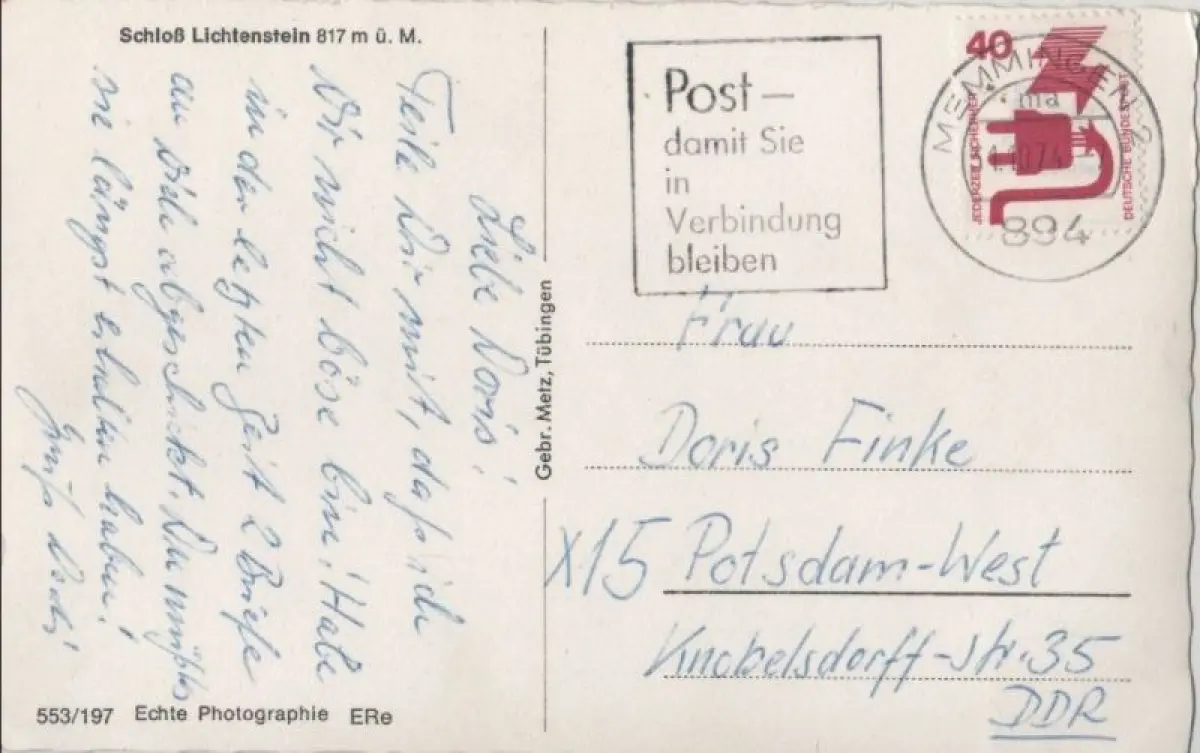 Schloß Lichtenstein 817 m ü. M.
Liebe Doris!
Teile Dir mit, daß ich
Dir nicht böse bin! Habe
in der letzten Zeit 2 Briefe
an Dich abgeschickt. Du müßtest
sie längst erhalten haben!
Gruß
553/197 Echte Photographie ERe
Gebr. Metz, Tübingen
Post –
damit Sie
in
Verbindung
bleiben
40
JEDERZEIT SICHERHEIT
DEUTSCHE BUNDESPOST
MEMMINGEN 2
ma
894
Frau
Doris Finke
X15 Potsdam-West
Knobelsdorff-str. 35
DDR